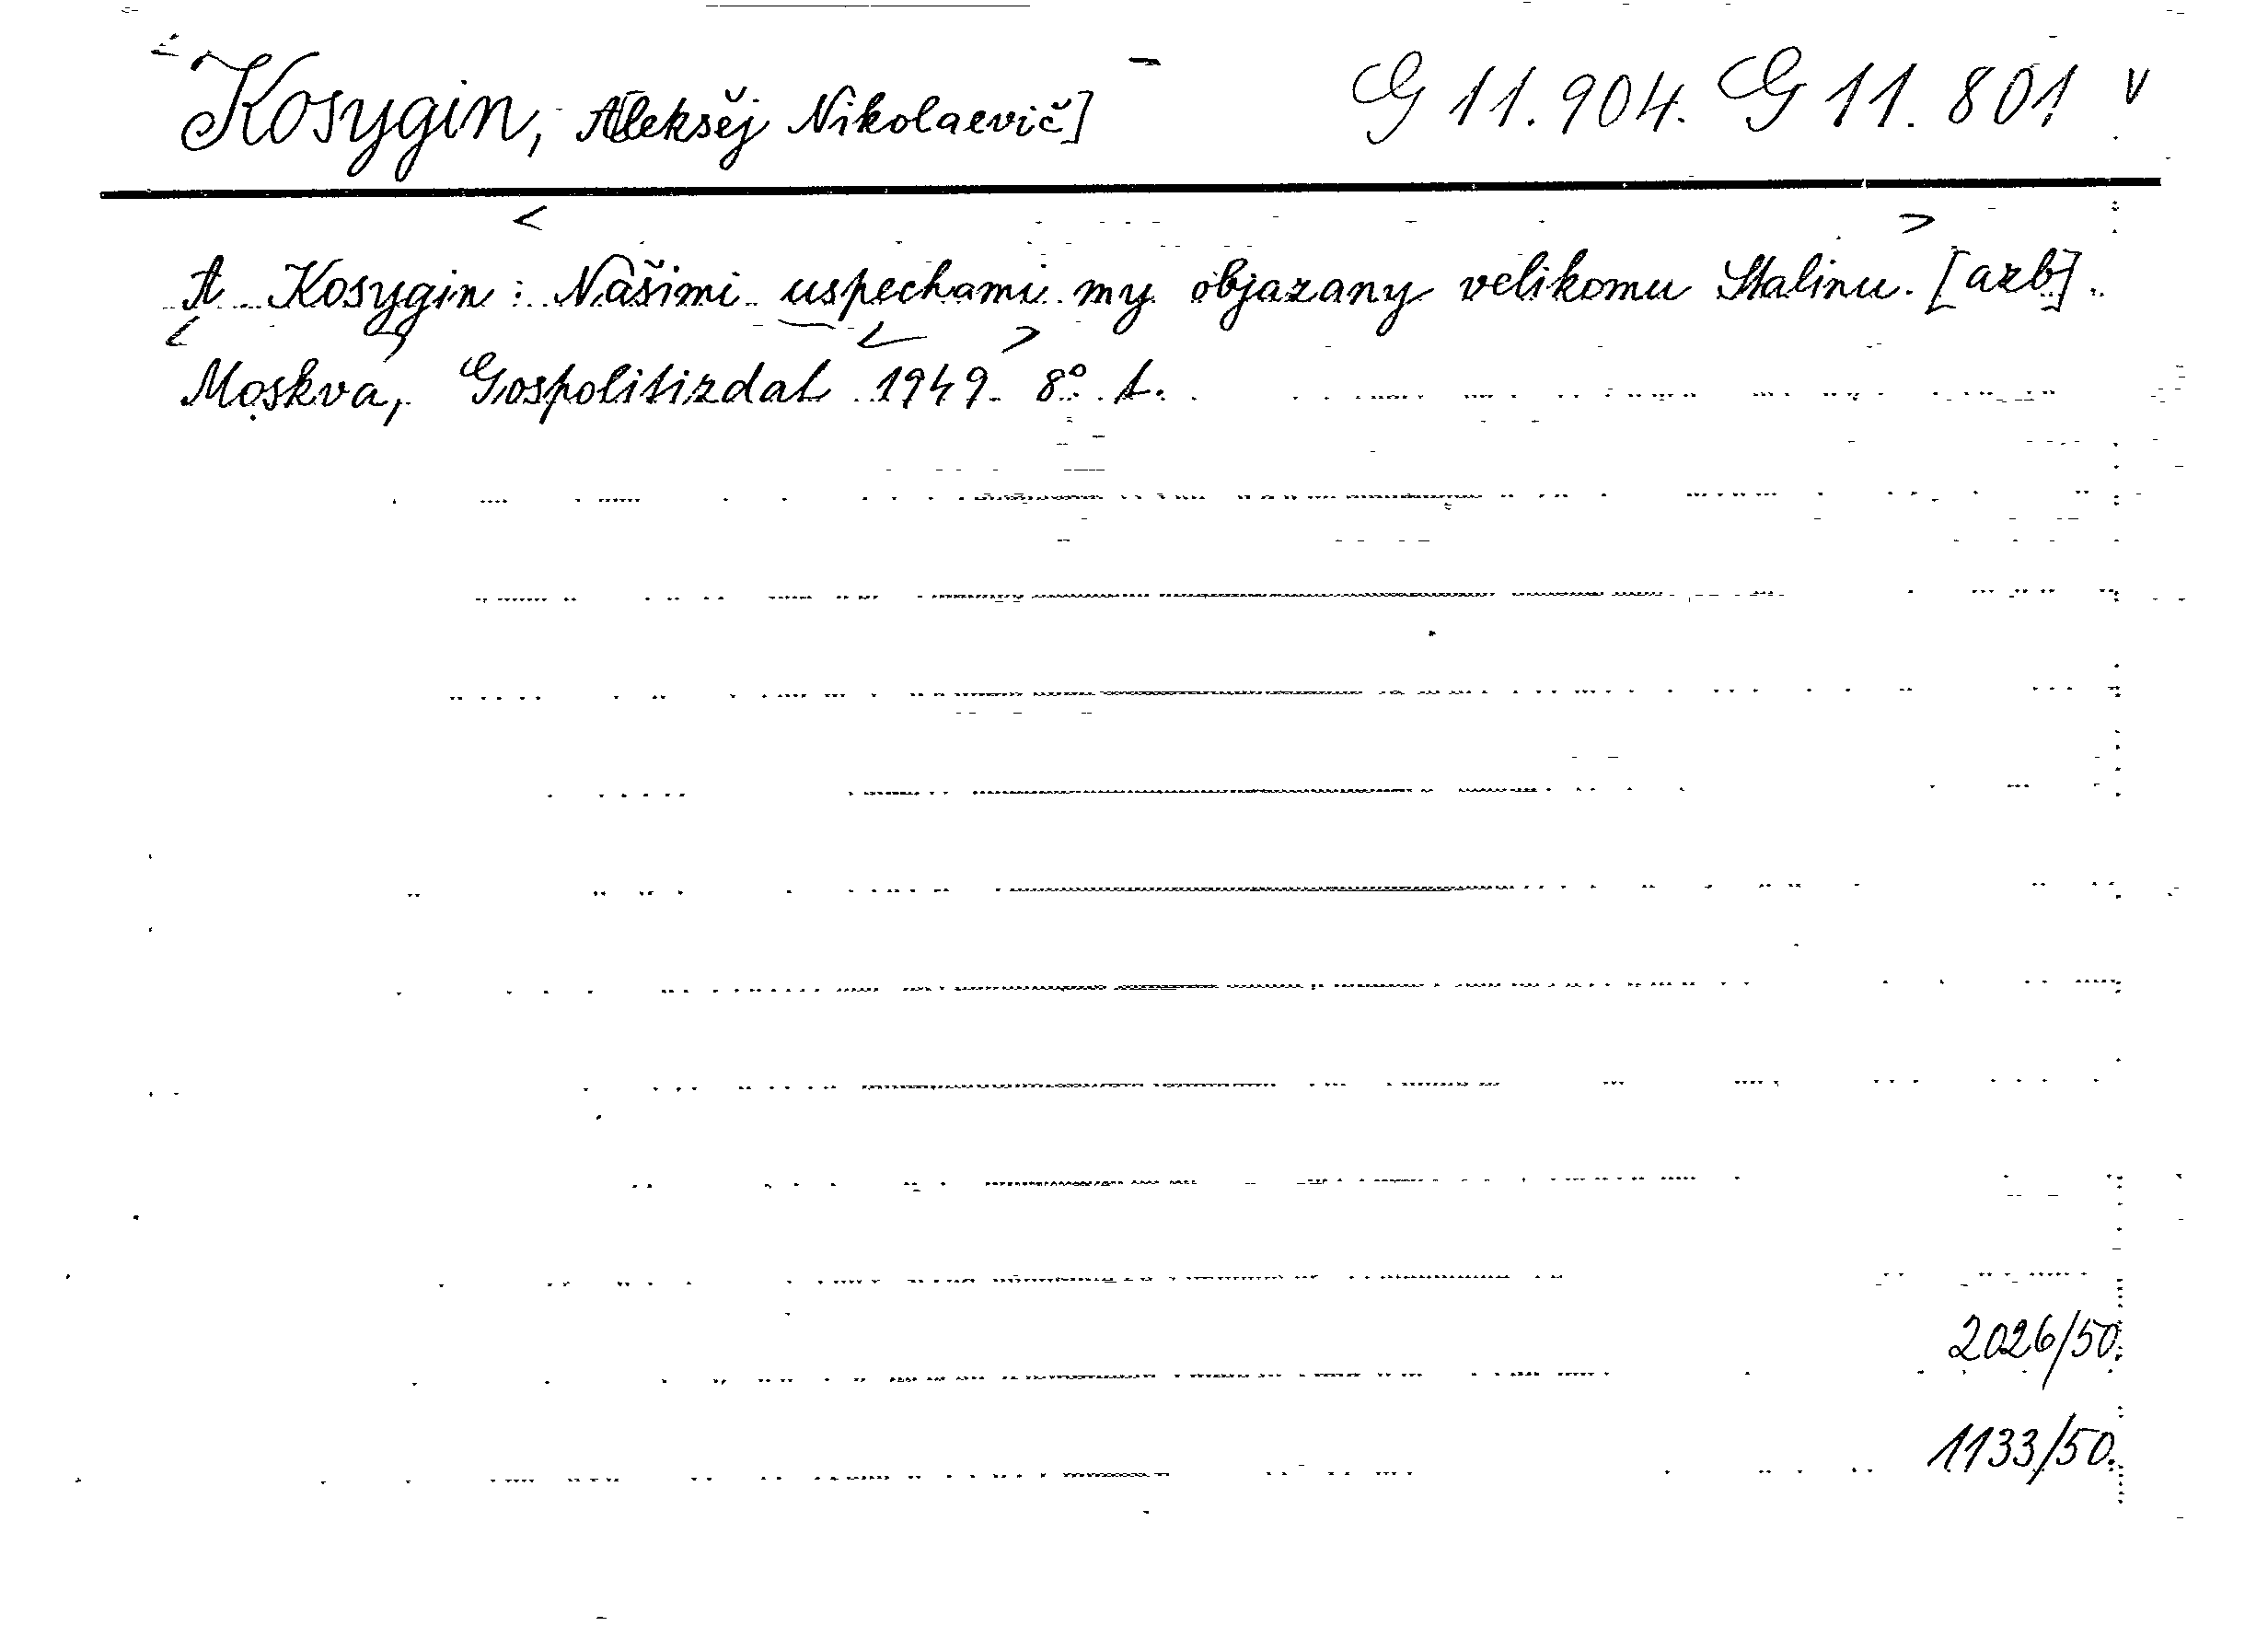 Kosygin, A[leksěj Nikolaevič] G 11.904. G 11.801
A Kosygin: Našimi uspechami my objazany velikomu Stalinu. [azb].
Moskva, Gospolitizdat 1949 8° t.
2026/50.
1133/50.